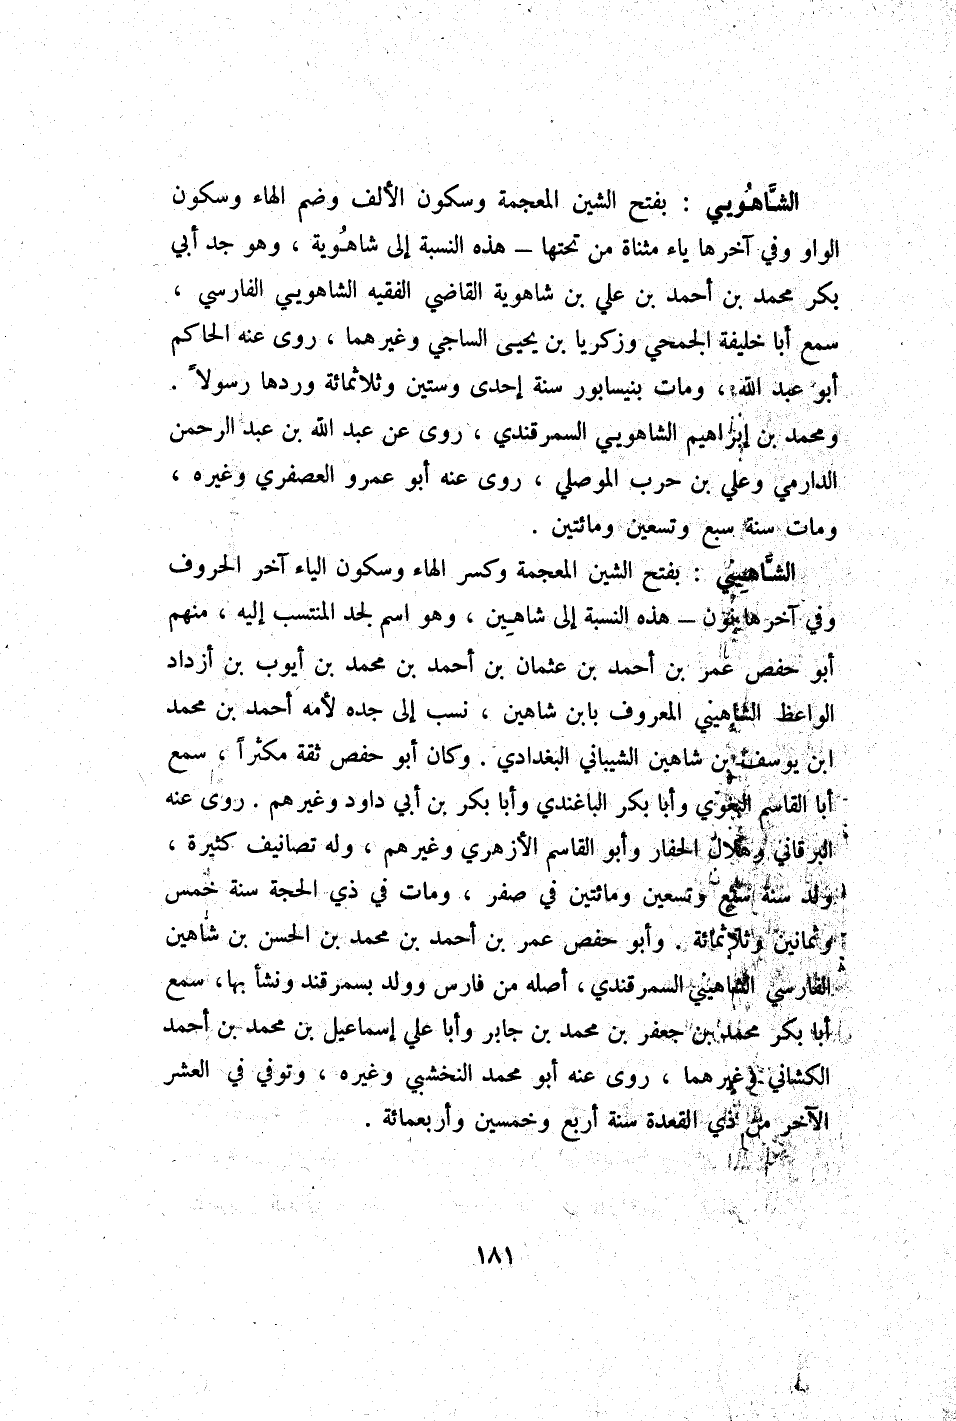 الشَّاهُويي : بفتح الشين المعجمة وسكون الألف وضم الهاء وسكون
الواو وفي آخرها ياء مثناة من تحتها – هذه النسبة إلى شاهُوية ، وهو جد أبي
بكر محمد بن أحمد بن علي بن شاهوية القاضي الفقيه الشاهويي الفارسي ،
سمع أبا خليفة الجمحي وزكريا بن يحيى الساجي وغيرهما ، روى عنه الحاكم
أبو عبد الله ، ومات بنيسابور سنة إحدى وستين وثلاثمائة وردها رسولاً .
ومحمد بن إبراهيم الشاهويي السمرقندي ، روى عن عبد الله بن عبد الرحمن
الدارمي وعلي بن حرب الموصلي ، روى عنه أبو عمرو العصفري وغيره ،
ومات سنة سبع وتسعين ومائتين .
الشَّاهِيني : بفتح الشين المعجمة وكسر الهاء وسكون الياء آخر الحروف
وفي آخرها نون – هذه النسبة إلى شاهِين ، وهو اسم لجد المنتسب إليه ، منهم
أبو حفص عمر بن أحمد بن عثمان بن أحمد بن محمد بن أيوب بن أزداد
الواعظ الشاهيني المعروف بابن شاهين ، نسب إلى جده لأمه أحمد بن محمد
ابن يوسف بن شاهين الشيباني البغدادي . وكان أبو حفص ثقة مكثراً ، سمع
أبا القاسم البغوي وأبا بكر الباغندي وأبا بكر بن أبي داود وغيرهم . روى عنه
البرقاني وهلال الحفار وأبو القاسم الأزهري وغيرهم ، وله تصانيف كثيرة ،
ولد سنة سبع وتسعين ومائتين في صفر ، ومات في ذي الحجة سنة خمس
وثمانين وثلاثمائة . وأبو حفص عمر بن أحمد بن محمد بن الحسن بن شاهين
الفارسي الشاهيني السمرقندي، أصله من فارس وولد بسمرقند ونشأ بها، سمع
أبا بكر محمد بن جعفر بن محمد بن جابر وأبا علي إسماعيل بن محمد بن أحمد
الكشاني وغيرهما ، روى عنه أبو محمد النخشبي وغيره ، وتوفي في العشر
الآخر من ذي القعدة سنة أربع وخمسين وأربعمائة .
١٨١